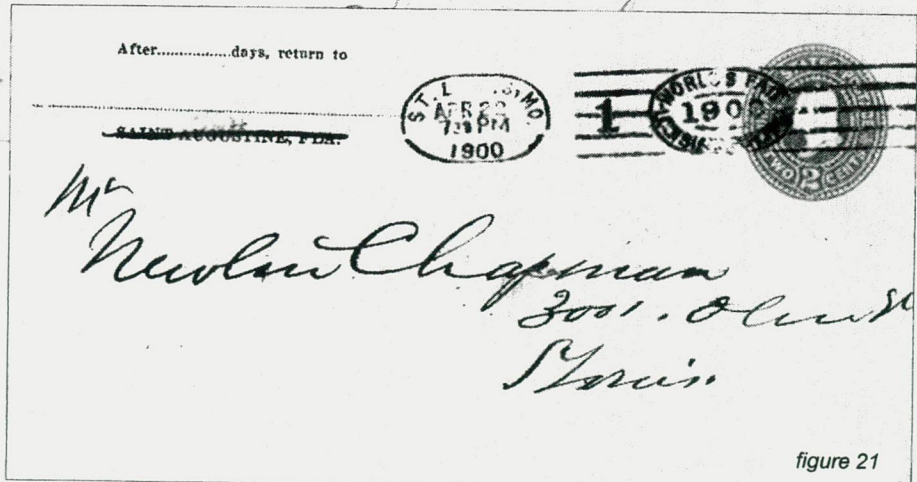 After..............days, return to
SAINT AUGUSTINE, FLA.
ST. L S, MO.
APR 2
7 PM
1900
1
WORLD'S FAIR
190
ST. LOUIS
TWO 2 CENTS
Mr
Chapman
3001. Olive St
St Louis.
figure 21